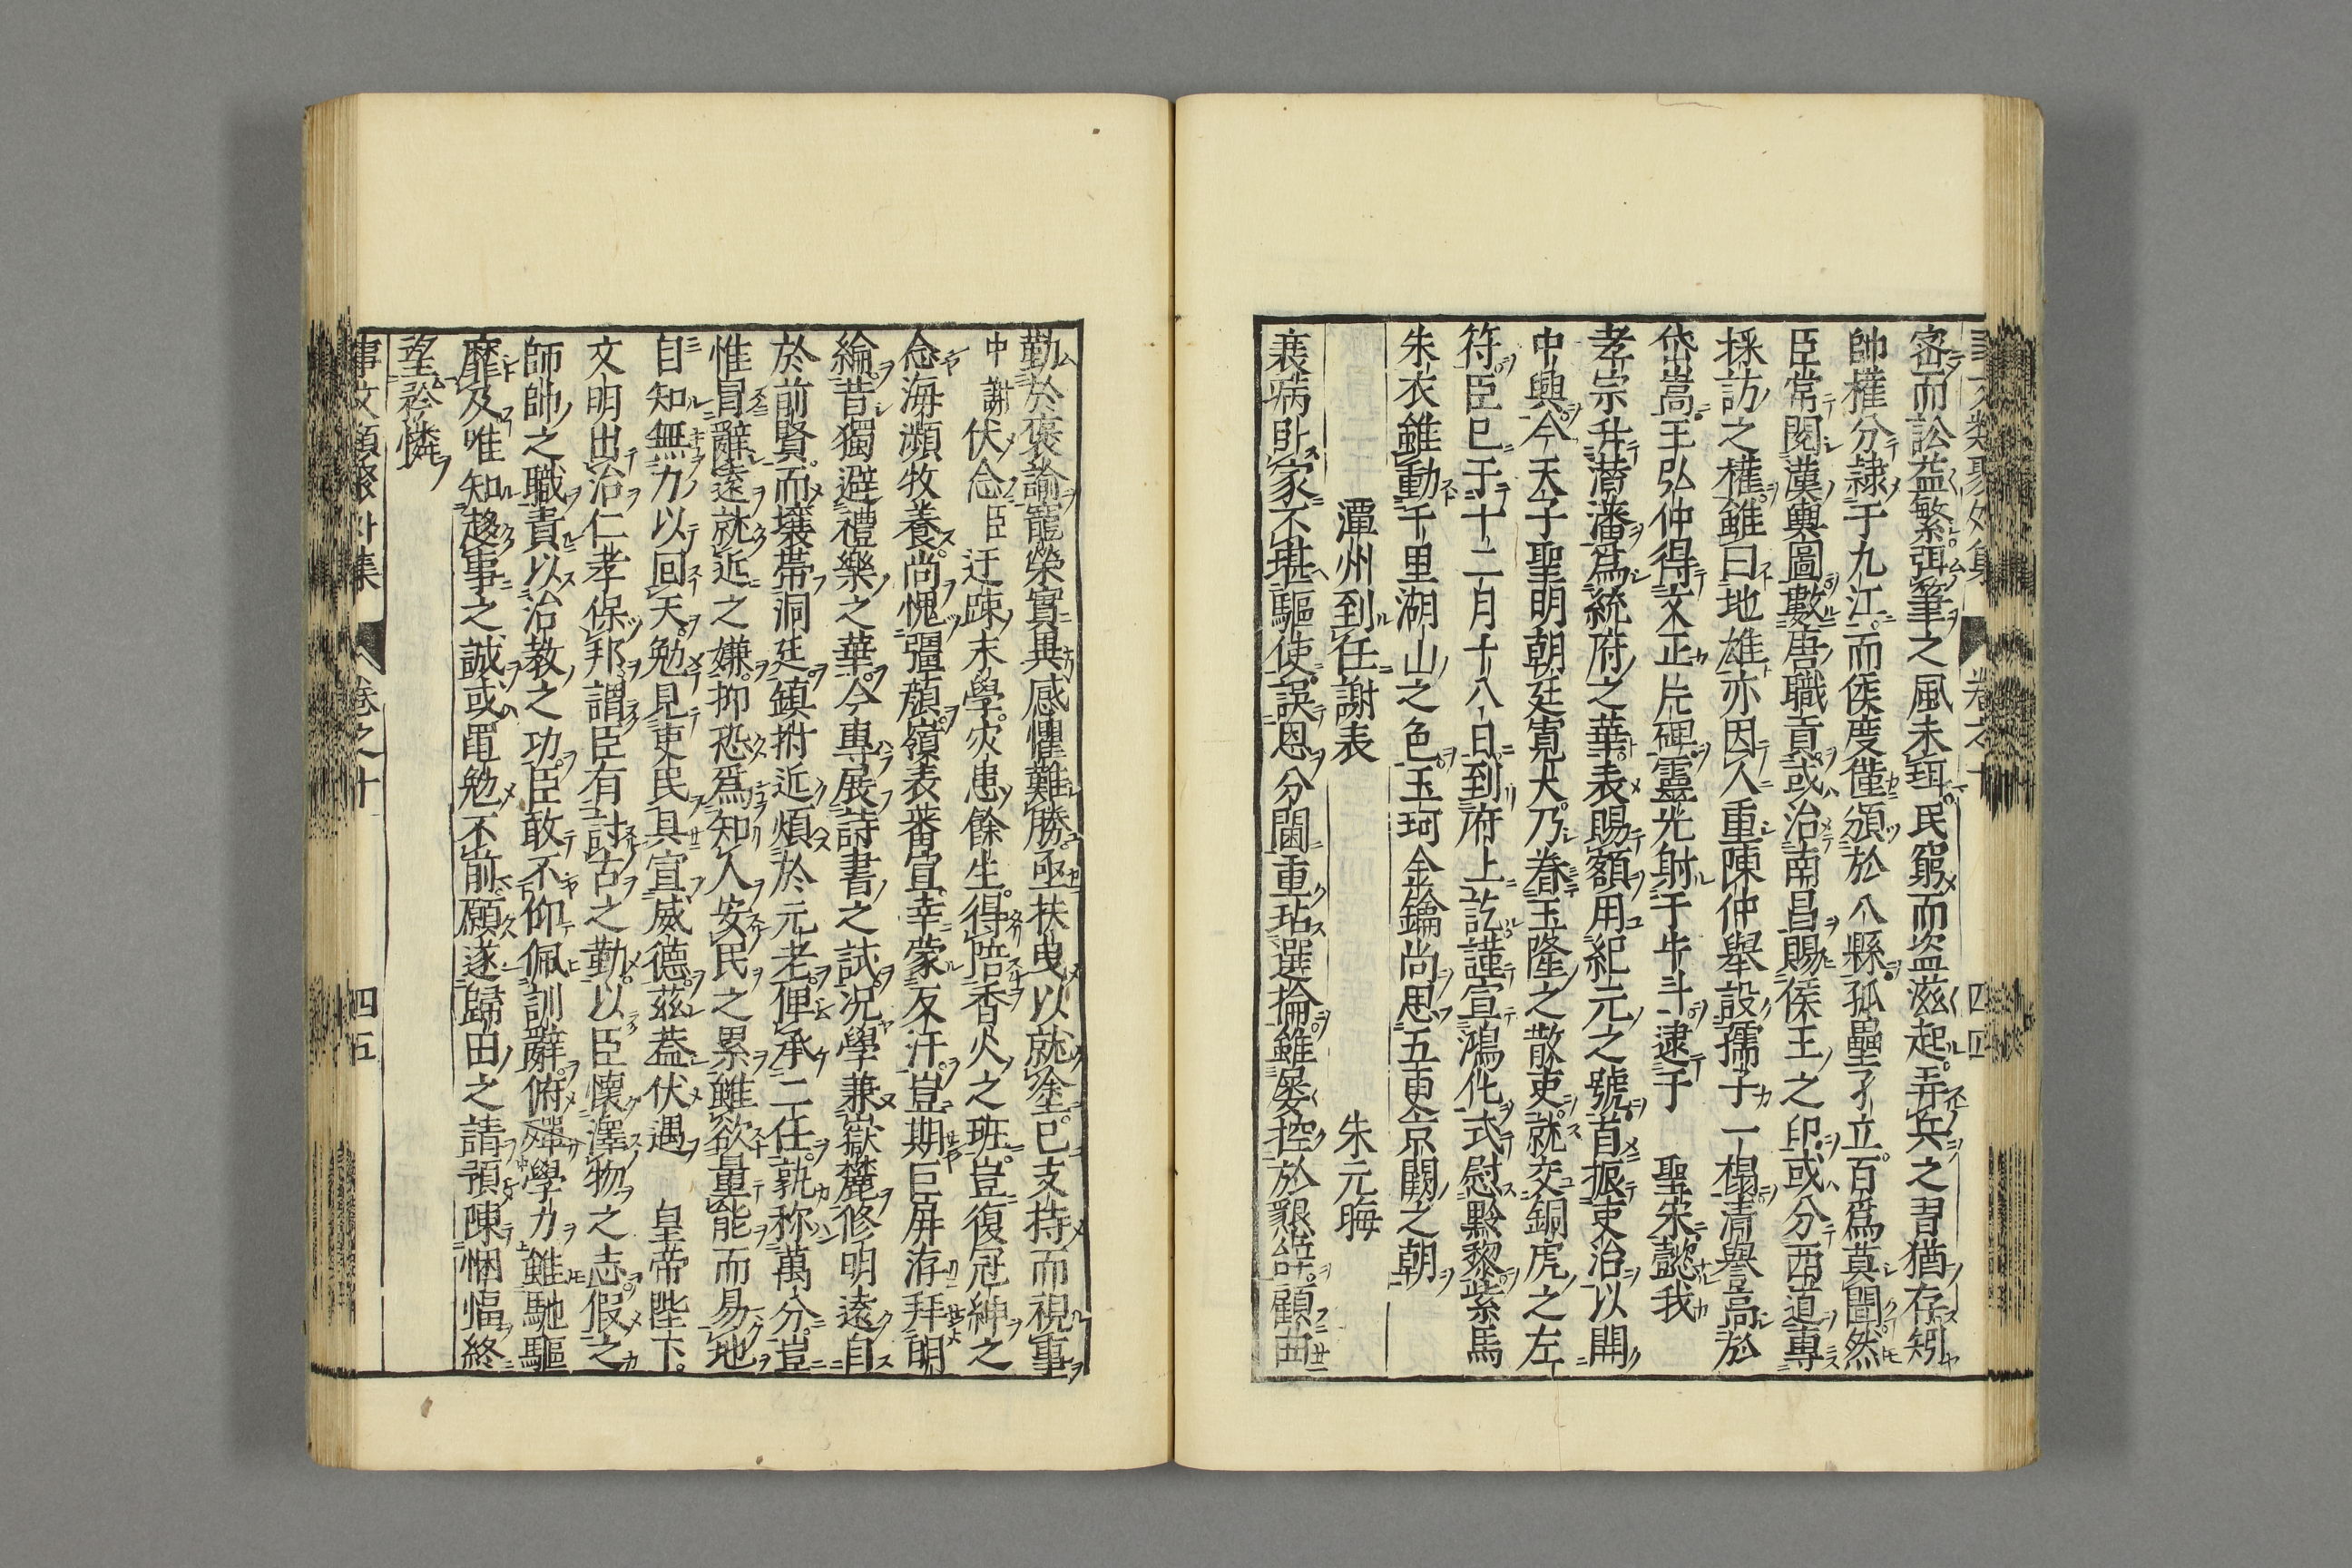 密而訟益繁弭聱之風未珥民窮而盗滋起弄兵之習猶存矧
帥權分隷于九江而侯度僅頒於八縣孤壘孑立百爲莫聞然
臣常閱漢輿圖數唐職貢或治南昌賜侯王之印或分西道專
採訪之權雖曰地雄亦因人重陳仲舉設孺子一榻清譽高於
岱嵩王弘仲得文正片碑靈光射于牛斗逮于 聖宋懿我
孝宗升潜藩爲統府之華表賜額用紀元之號首振吏治以開
中興今天子聖明朝廷寛大乃眷玉隆之散吏就交銅虎之左
符臣已于十二月十八日到府上訖謹宣鴻化式慰黔黎紫馬
朱衣雖動千里湖山之色玉珂金鑰尚思五更京闕之朝
潭州到任謝表 朱元晦
衰病卧家不堪驅使誤恩分閫重玷選掄雖屡控於懇辭顧曲
勤於褒諭寵榮實異感懼難勝亟扶曳以就塗已支持而視事
中謝伏念臣迂踈末學灾患餘生得陪香火之班豈復冠紳之
念海瀕牧養尚愧彊顔嶺表蕃宣幸蒙反汗豈期巨屏洊拜明
綸昔獨避禮樂之華今專展詩書之試况學兼嶽麓修明遠自
於前賢而壤帶洞廷鎮拊近煩於元老俾承二任孰称萬分豈
惟冒辭遠就近之嫌抑恐爲知人安民之累雖欲量能而易地
自知無力以回天勉見吏民具宣威德茲葢伏遇 皇帝陛下
文明出治仁孝保邦謂臣有討古之勤以臣懷澤物之志假之
師帥之職責以治教之功臣敢不仰佩訓辭俯殫學力雖馳驅
靡及唯知趍事之誠或黽勉不前願遂歸田之請預陳悃愊終
望矜憐
事文類聚外集 巻之十 四五